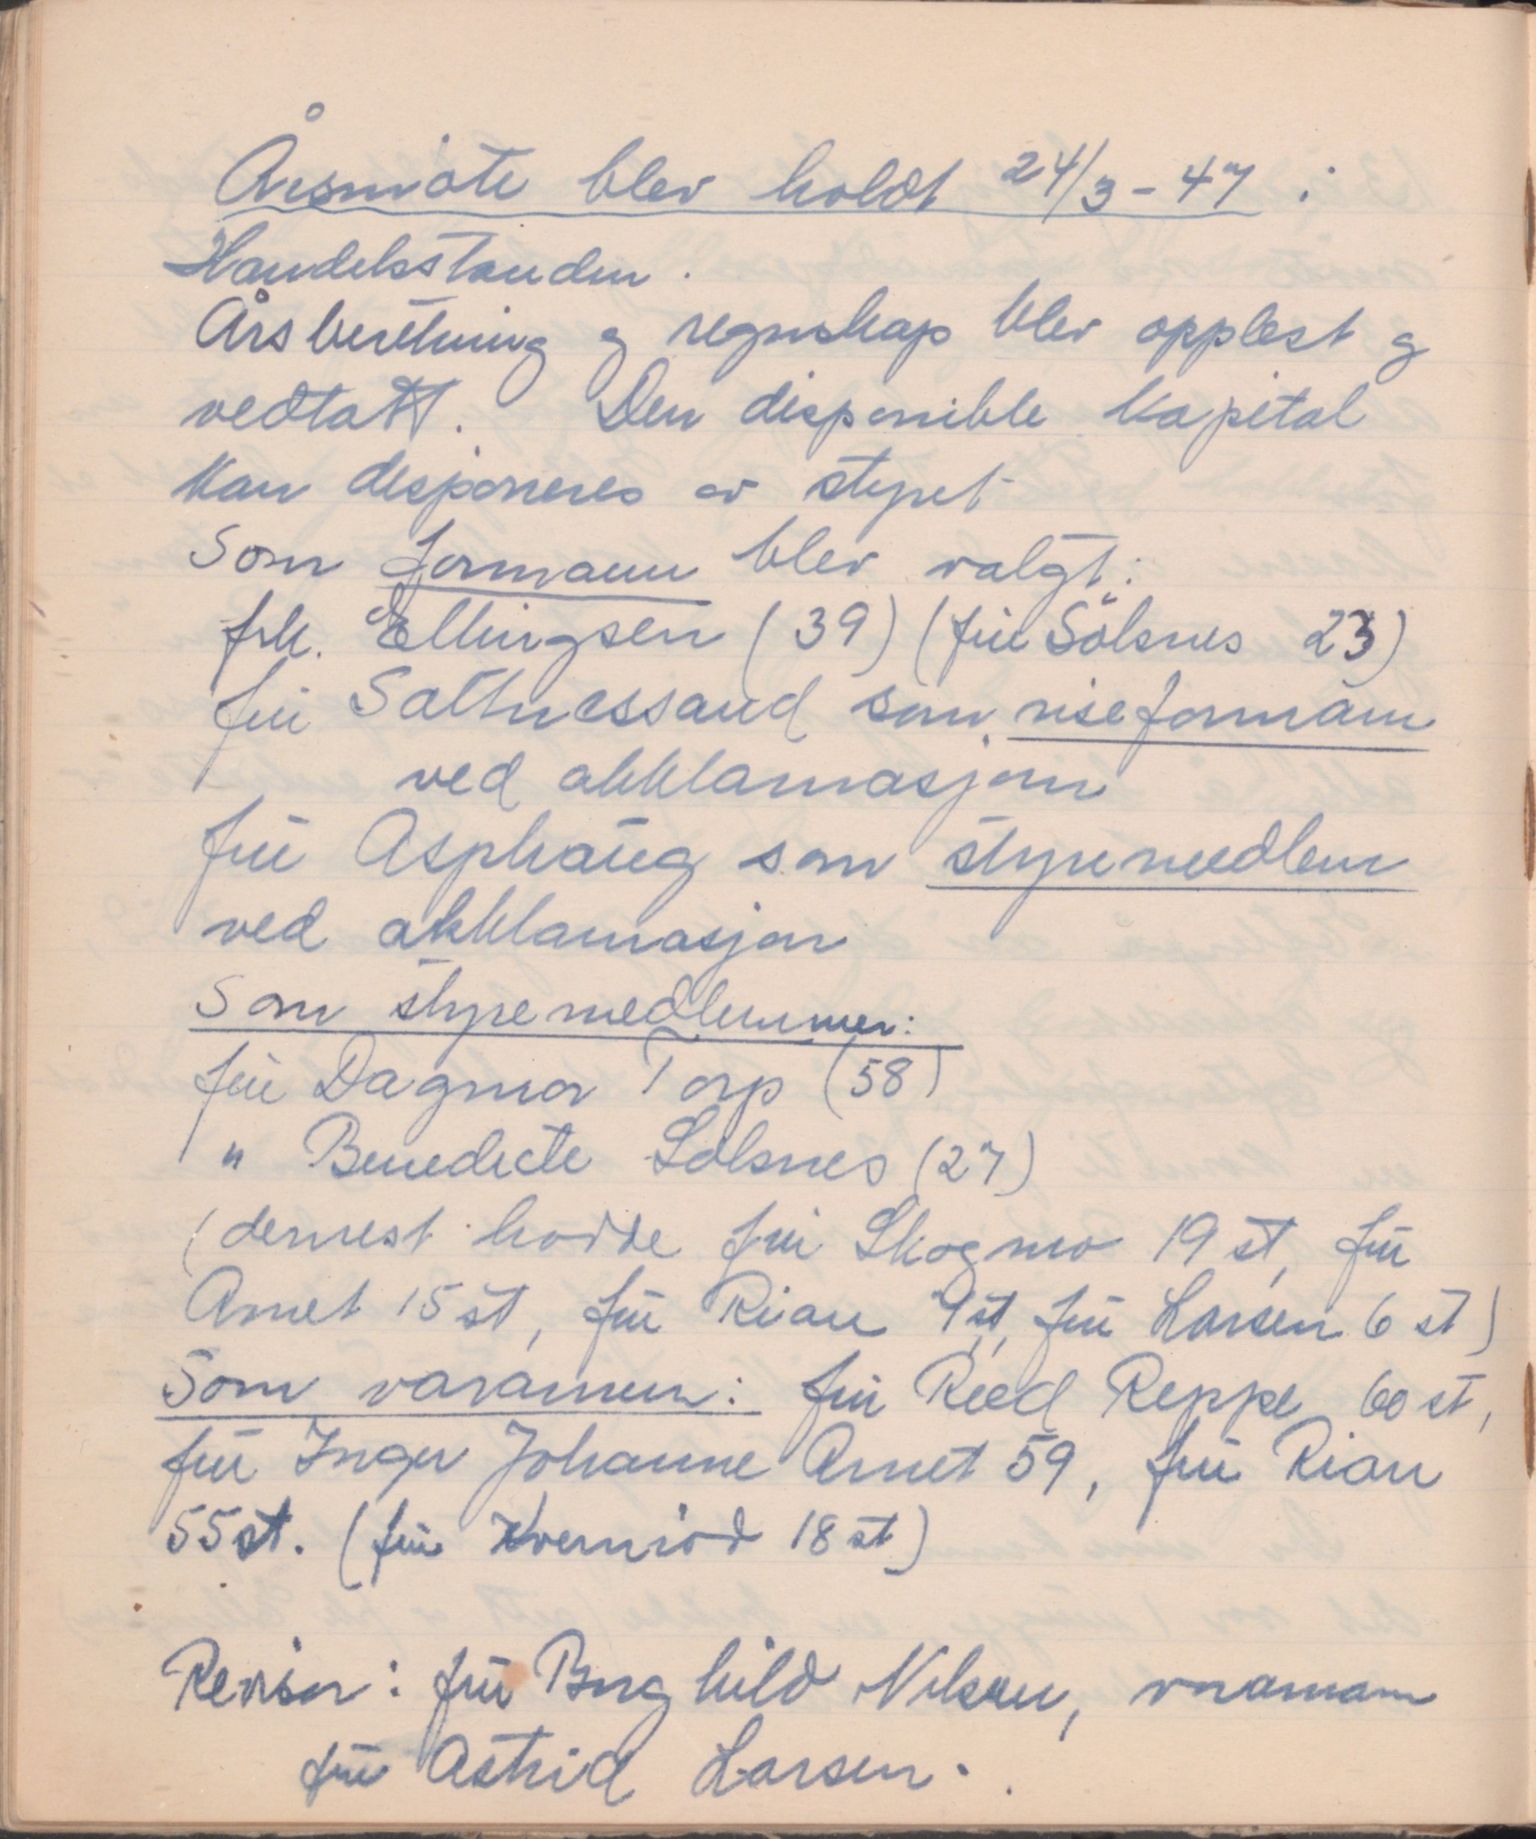 Årsmöte blev holdt 24/3-47 i
Handelsstanden.
Årsberetning og regnskap blev opplest og
vedtatt. Den disponible kapital
kan disponeres av styret
Som formann blev valgt:
frk. Ellingsen (39) (fru Sölsnes 23)
fru Sathnessand som viseformann
ved akklamasjon
fru Asphaug som styremedlem
ved akklamasjon
Som styremedlemmer:
fru Dagmar Torp (58)
" Benedicte Solsnes (27)
(dernest hadde fru Skogmo 19 st, fru
Arnet 15 st, fru Rian 9 st, fru Larsen 6 st)
Som varamenn: fru Reed Reppe 60 st,
fru Inger Johanne Arnet 59, fru Rian
55 st. (fru Kvernród 18 st)
Revisor: fru Borghild Nilsen, varamann
fru Astrid Larsen.